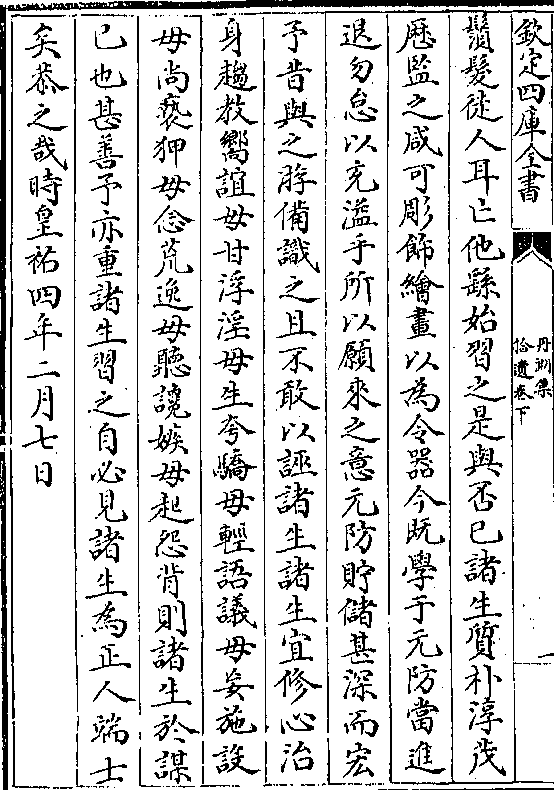 欽定四庫全書
丹淵集
拾遺卷下
鬚髮徒人耳亡他繇始習之是與否已諸生質朴淳茂
歴監之咸可彫飾繪畫以為令器今既學于元防當進
退勿怠以充溢乎所以願來之意元防貯儲甚深而宏
予昔與之游備識之且不敢以誣諸生諸生宜修心治
身趨教嚮誼毋甘浮淫毋生夸驕毋輕語議毋妄施設
毋尚褻狎毋念荒逸毋聽讒嫉毋起怨背則諸生於謀
已也甚善予亦重諸生習之自必見諸生為正人端士
矣恭之哉時皇祐四年二月七日